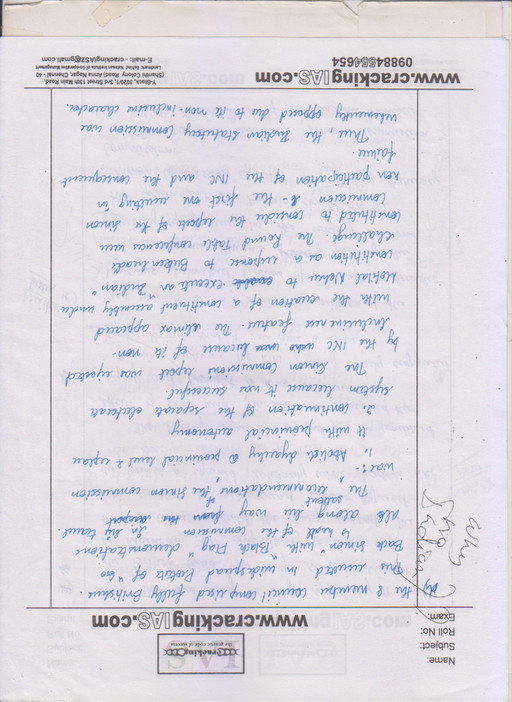 Name:
Subject:
Roll No:
Exam:
Cracking IAS
www.crackingIAS.com
the 8 member council comprised fully Britishers.
This resulted in widespread Protests of "Go
Back Simon" with "Black Flag" demonstrations
by most of the commission in his travel
all along his way
The salient recommendations of the Simon commission
was:-
1. Abolish dyarchy @ provincial level & replace
it with provincial autonomy
2. continuation of the separate electorate
system because it was successful.
The Simon Commissions report was rejected
by the INC because of its non-
Inclusiveness feature. The climax appeared
with the creation of a constituent assembly under
Motilal Nehru to execute an "Indian"
constitution as a response to Birkenhead's
challenge. The Round Table conferences were
constituted to consider the reports of the Simon
Commission & the first one resulting in
non participation of the INC and the consequent
failure.
Thus, the Indian Statutory Commission was
vehemently opposed due to its non-inclusive character.
why no
Indians?
www.crackingIAS.com
09884554654
Y-Block, 302R/1, 3rd Street 13th Main Road,
(Shanthi Colony Road) Anna Nagar, Chennai - 40
E-mail: - crackingIAS3@gmail.com